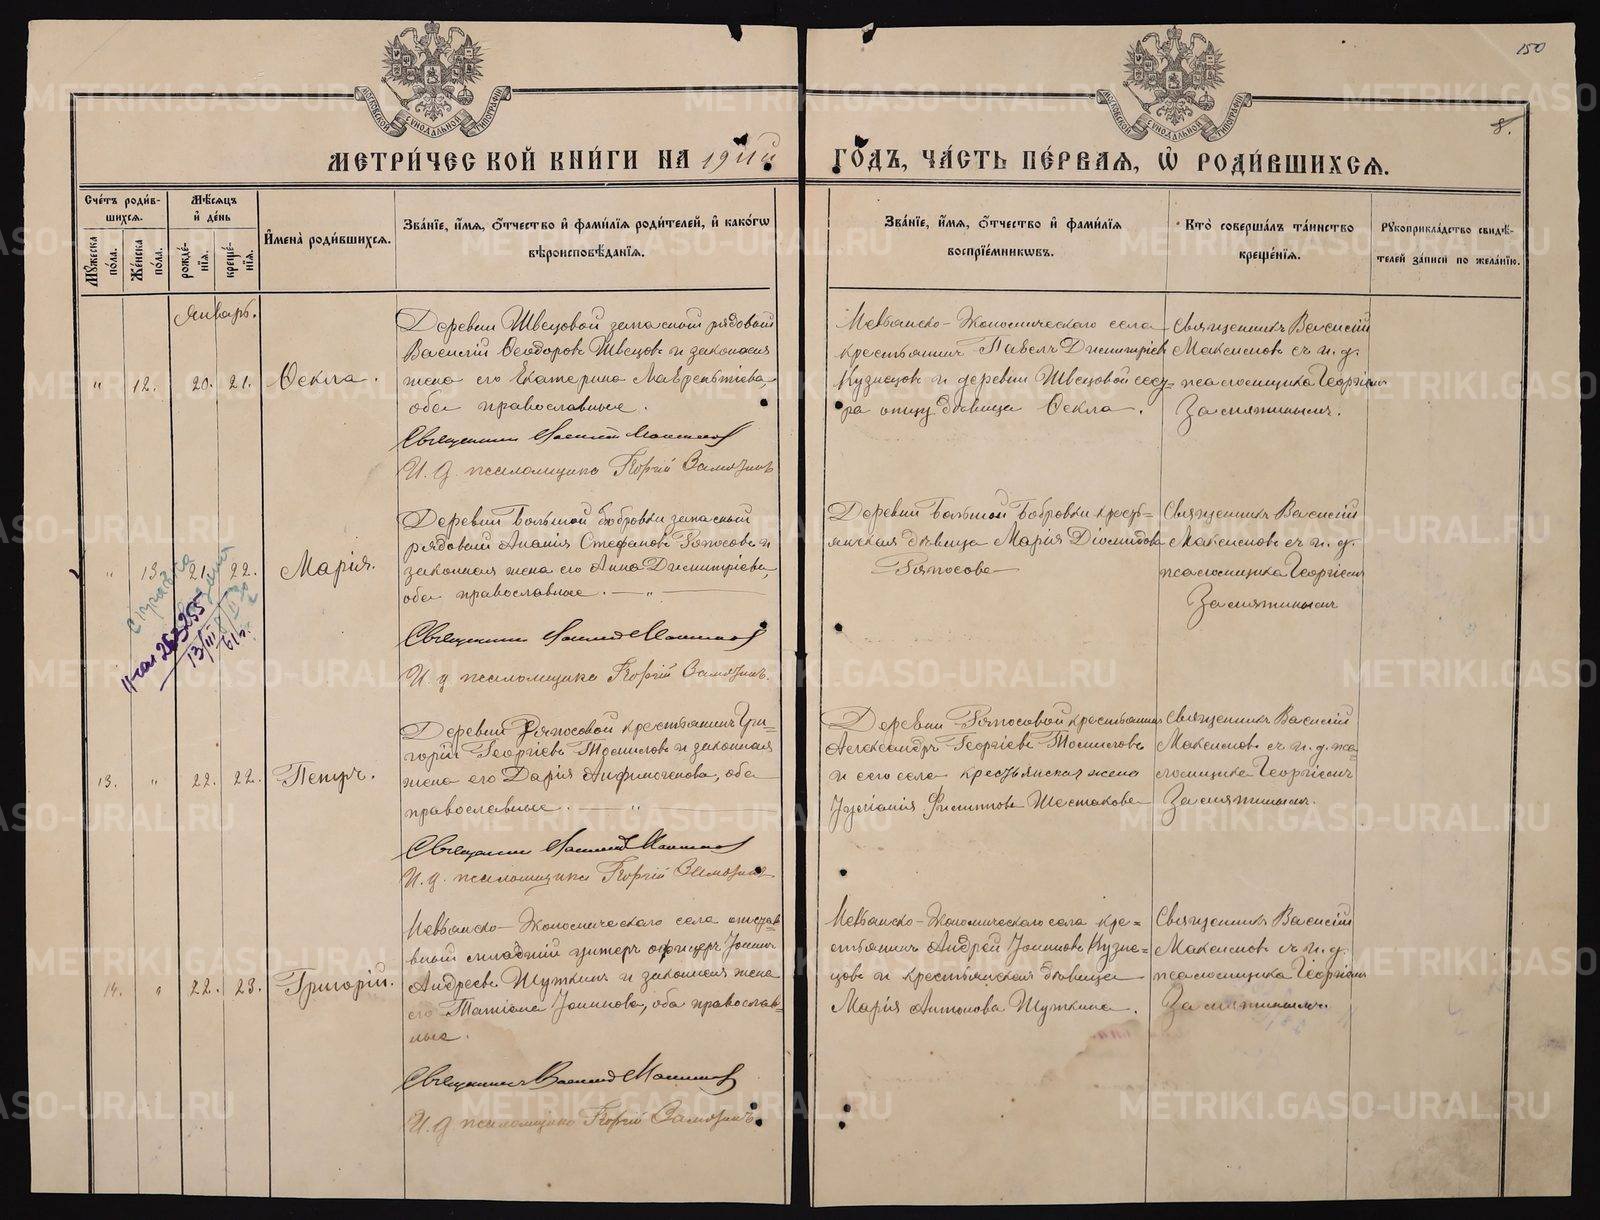 150
8.
МЕТРИ́ЧЕСКОЙ КНИ́ГИ НА 1911й
ГО́ДЪ, ЧА́СТЬ ПЕ́РВАЯ, Ѡ҆ РОДИ́ВШИХСѦ.
Сче́тъ роди́в-
шихсѧ.
Мꙋ́жеска по́ла.
Же́нска по́ла.
Мѣ́сѧцъ и҆ де́нь
рожде́-
нїѧ.
креще́-
нїѧ.
И҆мена̀ роди́вшихсѧ.
Зва́нїе, и҆́мѧ, ѻ҆́тчество и҆ фами́лїѧ роди́телей, и҆ како́гѡ
вѣроисповѣ́данїѧ.
Зва́нїе, и҆́мѧ, ѻ҆́тчество и҆ фами́лїѧ
воспрїе́мникѡвъ.
Кто̀ соверша́лъ та́инство
креще́нїѧ.
Рꙋкоприкла́дство свидѣ́-
телей за́писи по жела́нїю.
Январь.
" 12. 20. 21. Ѳекла.
Деревни Швецовой запасный рядовой
Василій Ѳеодоровъ Швецовъ и законная
жена его Екатерина Лаврентіева,
оба православные.
Священникъ Василій Максимовъ
И. д. псаломщика Георгій Замятинъ
Невьянско-Экономическаго села
крестьянинъ Павелъ Димитріевъ
Кузнецовъ и деревни Швецовой
дѣвица Ѳекла.
Священникъ Василій
Максимовъ съ и. д.
псаломщика Георгіемъ
Замятинымъ.
" 13 21. 22. Марія.
Деревни Большой Бобровки запасный
рядовой Ананія Стефановъ Ряпосовъ и
законная жена его Анна Димитріева,
оба православные. — " —
Священникъ Василій Максимовъ
И. д. псаломщика Георгій Замятинъ.
Деревни Большой Бобровки кресть-
янская дѣвица Марія Діомидова
Ряпосова —
Священникъ Василій
Максимовъ съ и. д.
псаломщика Георгіемъ
Замятинымъ
13. " 22. 22. Петръ.
Деревни Ряпосовой крестьянинъ Гри-
горій Георгіевъ Томиловъ и законная
жена его Дарія Анфиногенова, оба
православные. — " —
Священникъ Василій Максимовъ
И. д. псаломщика Георгій Замятинъ
Деревни Ряпосовой крестьянинъ
Александръ Георгіевъ Томиловъ
и сего села крестьянская жена
Іуліанія Филиппова Шестакова
Священникъ Василій
Максимовъ съ и. д. пса-
ломщика Георгіемъ
Замятинымъ.
14. " 22. 23. Григорій.
Невьянско-Экономическаго села отстав-
ный младшій унтеръ офицеръ Іоаннъ
Андреевъ Шуткинъ и законная жена
его Татіана Іоаннова, оба православ-
ные.
Священникъ Василій Максимовъ
И. д. псаломщика Георгій Замятинъ.
Невьянско-Экономическаго села кре-
стьянинъ Андрей Іоанновъ Кузне-
цовъ и крестьянская дѣвица
Марія Антонова Шуткина.
Священникъ Василій
Максимовъ съ и. д.
псаломщика Георгіемъ
Замятинымъ.
METRIKI.GASO-URAL.RU